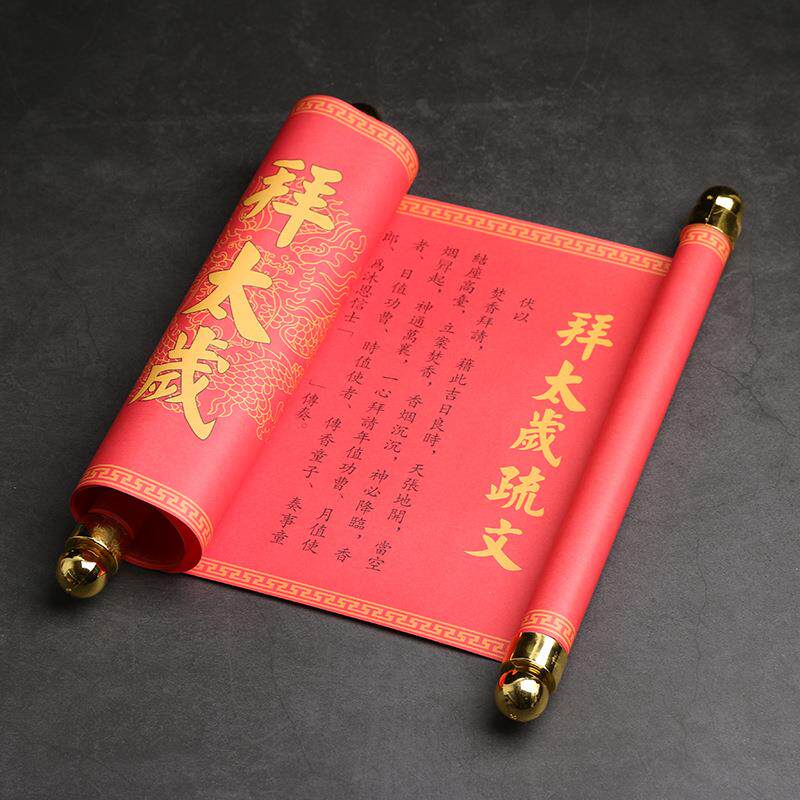 拜太歲
拜太歲疏文
伏以
焚香拜請，藉此吉日良時，天張地開，當空
結座高臺，立案焚香，香烟沉沉，神必降臨，香
烟昇起，神通萬裏，一心拜請年值功曹、月值使
者、日值功曹、時值使者、傳香童子、奏事童
郎、為沐恩信士「 」傳奏。